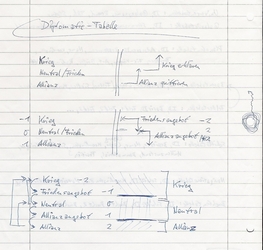 Diplomatie-Tabelle
Krieg
Neutral/Frieden
Allianz
Krieg erklären
Allianz
-1 Krieg
0 Neutral/Frieden
1 Allianz
Friedensangebot -2
Allianzangebot
Krieg -2
Friedensangebot -1
Neutral 0
Allianzangebot 1
Allianz 2
Krieg
Neutral
Allianz